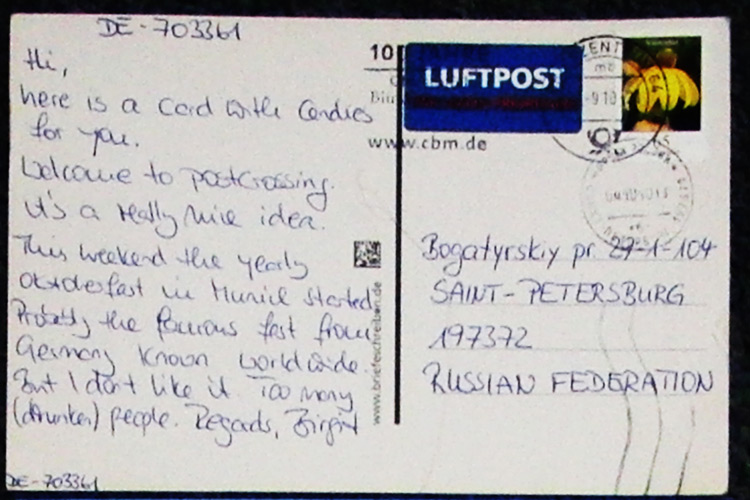 DE-703361
Hi,
here is a card with candies
for you.
Welcome to postcrossing.
It's a really nice idea.
This weekend the yearly
Oktoberfest in Munich started.
Probably the famous fest from
Germany known worldwide.
But I don't like it. Too many
(drunken) people. Regards, Birgit
DE-703361
10
LUFTPOST
www.cbm.de
www.briefeschreiben.de
Bogatyrskiy pr. 27-1-104
SAINT-PETERSBURG
197372
RUSSIAN FEDERATION